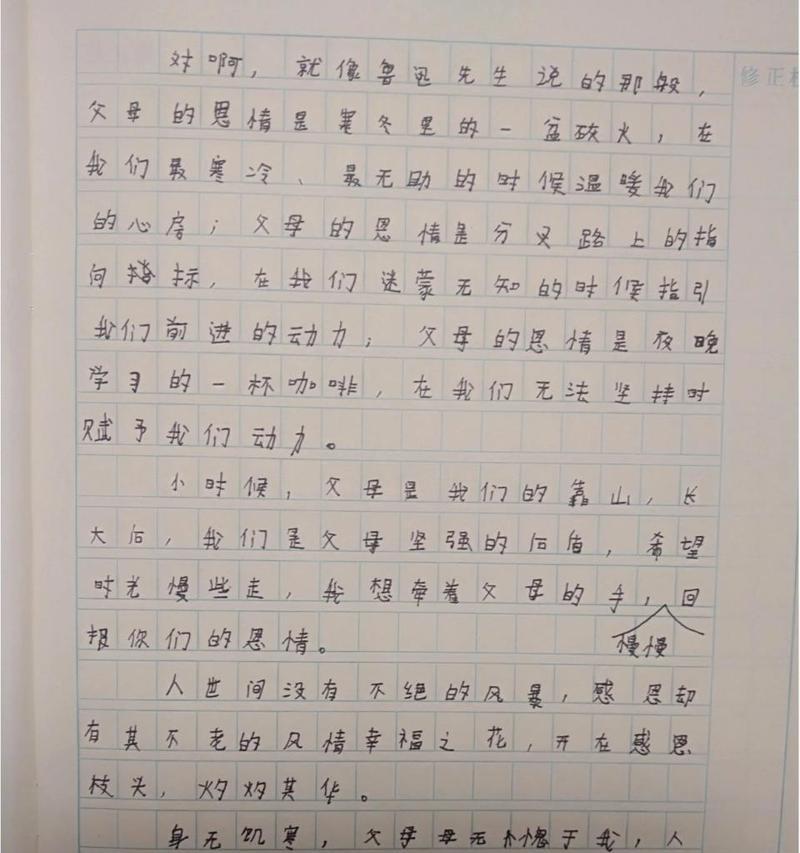 对啊，就像鲁迅先生说的那般，
修正栏
父母的恩情是寒冬里的一盆碳火，在
我们最寒冷、最无助的时候温暖我们
的心房；父母的恩情是分叉路上的指
向标，在我们迷蒙无知的时候指引
我们前进的动力；父母的恩情是夜晚
学习的一杯咖啡，在我们无法坚持时
赋予我们动力。
小时候，父母是我们的靠山，长
大后，我们是父母坚强的后盾，希望
时光慢些走，我想牵着父母的手，回
慢慢
报你们的恩情。
人世间没有不绝的风暴，感恩却
有其不老的风情幸福之花，开在感恩
枝头，灼灼其华。
身无饥寒，父母母无愧于我，人